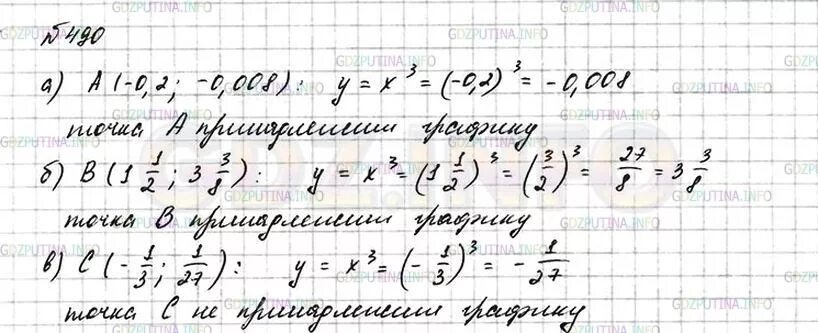 №490
а) A (-0,2; -0,008): y = x³ = (-0,2)³ = -0,008
точка A принадлежит графику
б) B (1 1/2; 3 3/8): y = x³ = (1 1/2)³ = (3/2)³ = 27/8 = 3 3/8
точка B принадлежит графику
в) C (-1/3; 1/27): y = x³ = (-1/3)³ = -1/27
точка C не принадлежит графику
GDZPUTINA.INFO